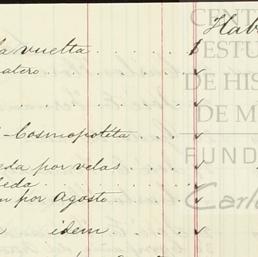 Hab
la vuelta
atero
Cosmopolita
eda por velas
leda
n por Agosto
idem
CENT
ESTU
DE HIS
DE M
FUND
Carl